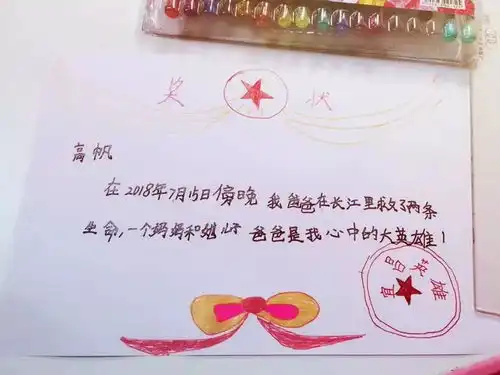 奖 状
高帆
在2018年7月15日傍晚 我爸爸在长江里救了两条
生命,一个妈妈和她 爸爸是我心中的大英雄!
英雄